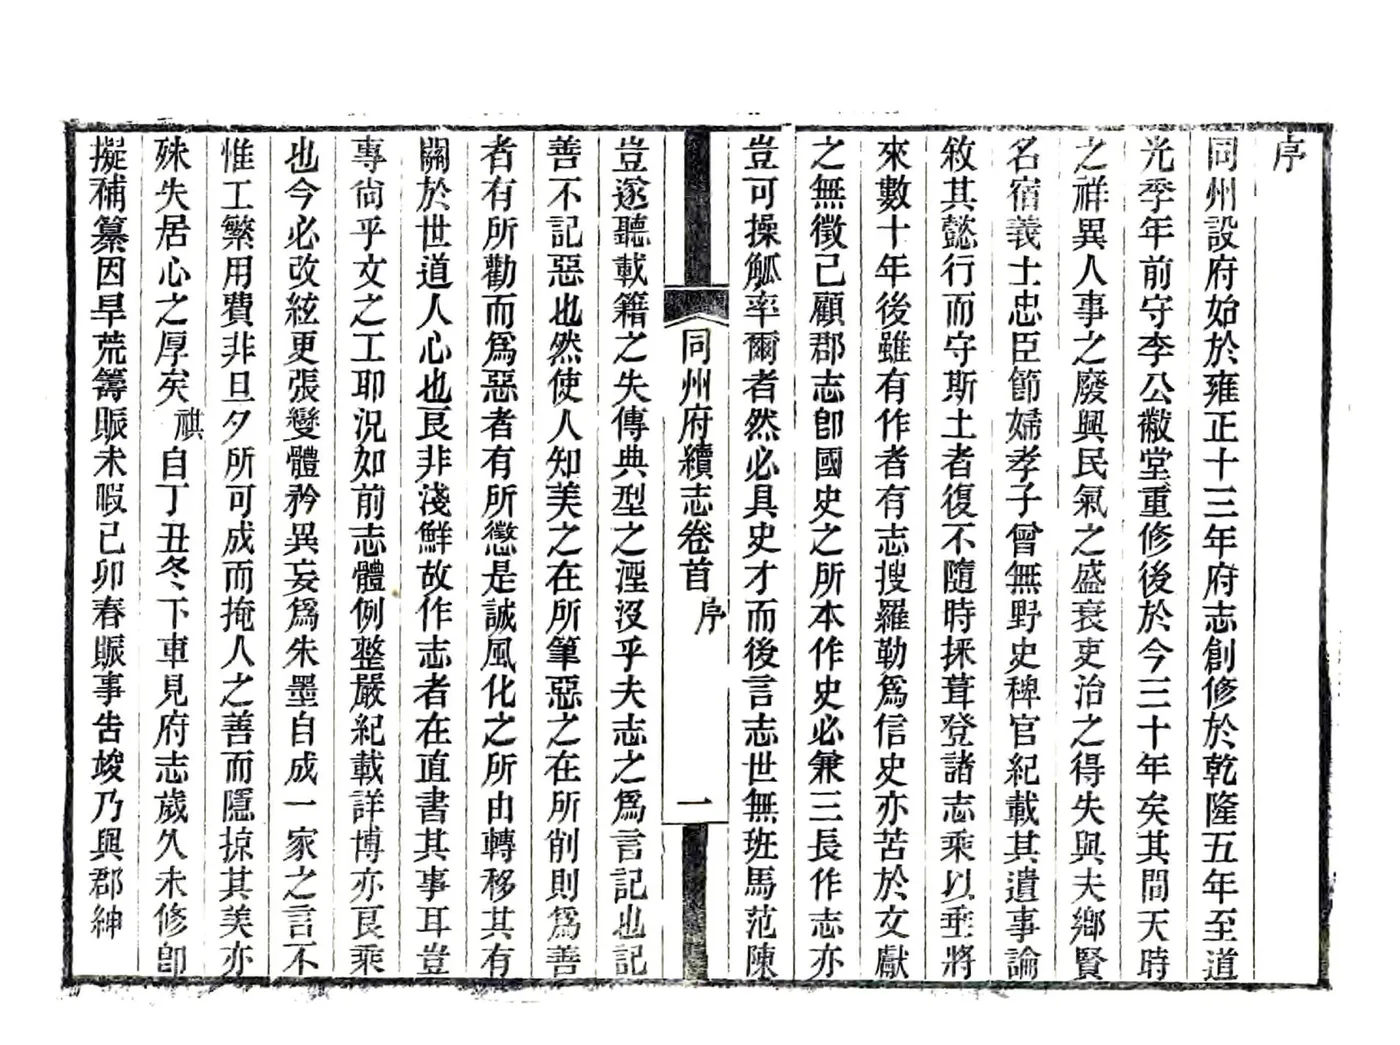 序
同州設府始於雍正十三年府志創修於乾隆五年至道
光季年前守李公黻堂重修後於今三十年矣其間天時
之祥異人事之廢興民氣之盛衰吏治之得失與夫鄉賢
名宿義士忠臣節婦孝子曾無野史稗官紀載其遺事論
敘其懿行而守斯土者復不隨時採葺登諸志乘以垂將
來數十年後雖有作者有志搜羅勒爲信史亦苦於文獻
之無徵已顧郡志卽國史之所本作史必兼三長作志亦
豈可操觚率爾者然必具史才而後言志世無班馬范陳
同州府續志卷首
序
一
豈遂聽載籍之失傳典型之湮沒乎夫志之爲言記也記
善不記惡也然使人知美之在所筆惡之在所削則爲善
者有所勸而爲惡者有所懲是誠風化之所由轉移其有
關於世道人心也良非淺鮮故作志者在直書其事耳豈
專尙乎文之工耶況如前志體例整嚴紀載詳博亦良乘
也今必改絃更張變體矜異妄爲朱墨自成一家之言不
惟工繁用費非旦夕所可成而掩人之善而隱掠其美亦
殊失居心之厚矣祺自丁丑冬下車見府志歲久未修卽
擬補纂因旱荒籌賑未暇己卯春賑事吿竣乃與郡紳